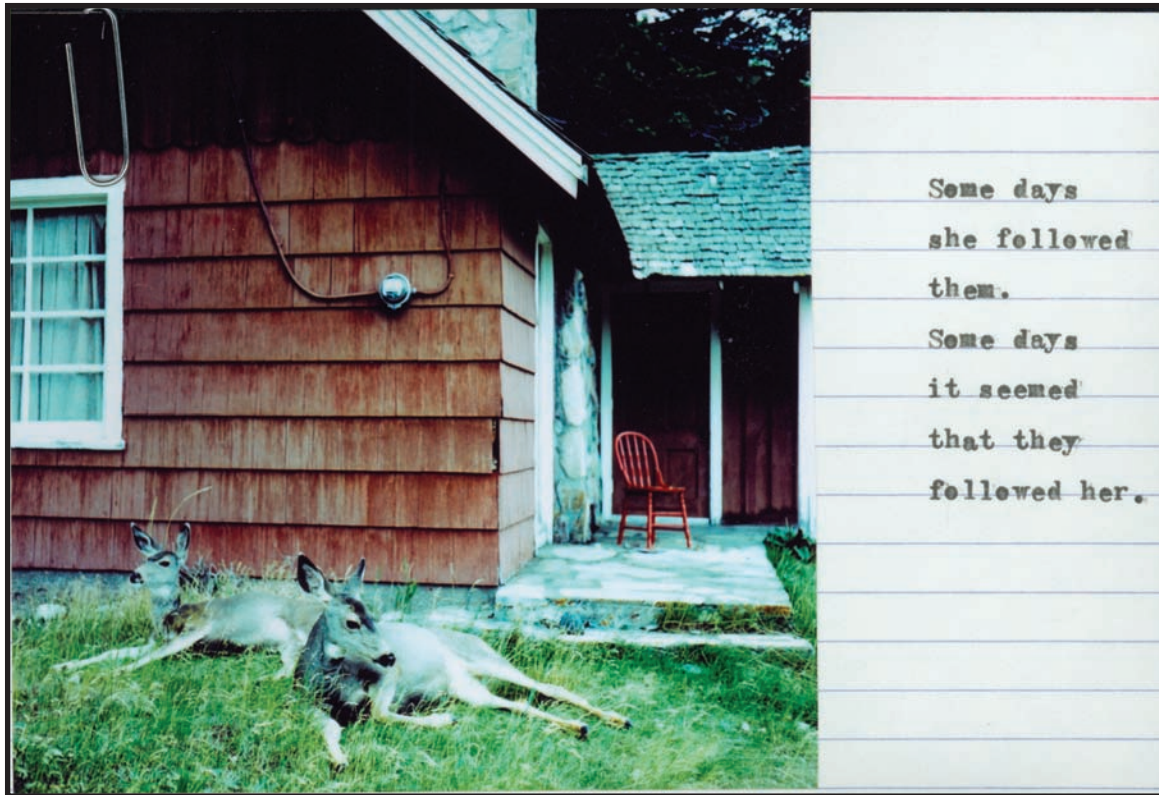 Some days
she followed
them.
Some days
it seemed
that they
followed her.